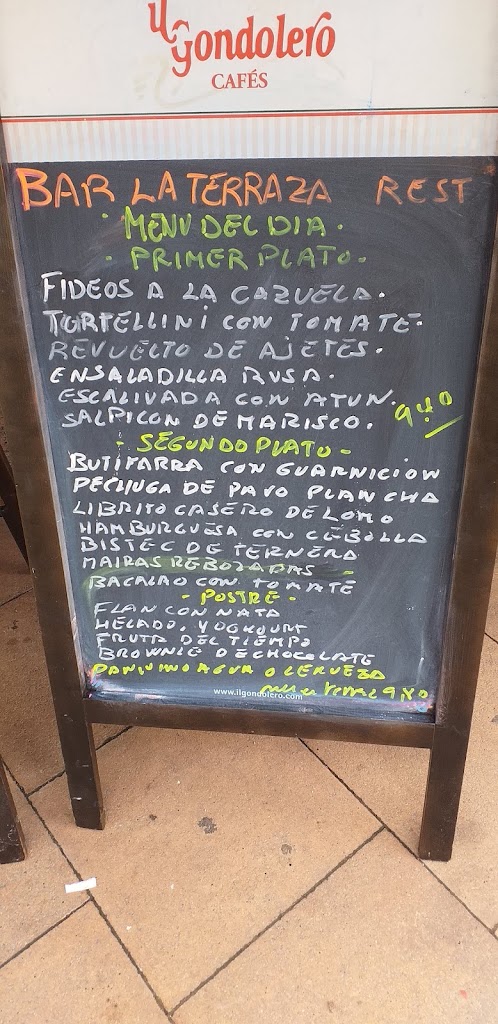 il
Gondolero
CAFÉS
BAR LA TERRAZA REST
MENU DEL DIA.
PRIMER PLATO.
FIDEOS A LA CAZUELA.
TORTELLINI CON TOMATE.
REVUELTO DE AJETES.
ENSALADILLA RUSA.
ESCALIVADA CON ATUN.
SALPICON DE MARISCO. 9,40
- SEGUNDO PLATO -
BUTIFARRA CON GUARNICION
PECHUGA DE PAVO PLANCHA
LIBRITO CASERO DE LOMO
HAMBURGUESA CON CEBOLLA
BISTEC DE TERNERA
MAIRAS REBOZADAS
BACALAO CON TOMATE
- POSTRE -
FLAN CON NATA
HELADO, YOGHOURT
FRUTA DEL TIEMPO
BROWNIE DE CHOCOLATE
PAN VINO AGUA O CERVEZA
www.ilgondolero.com